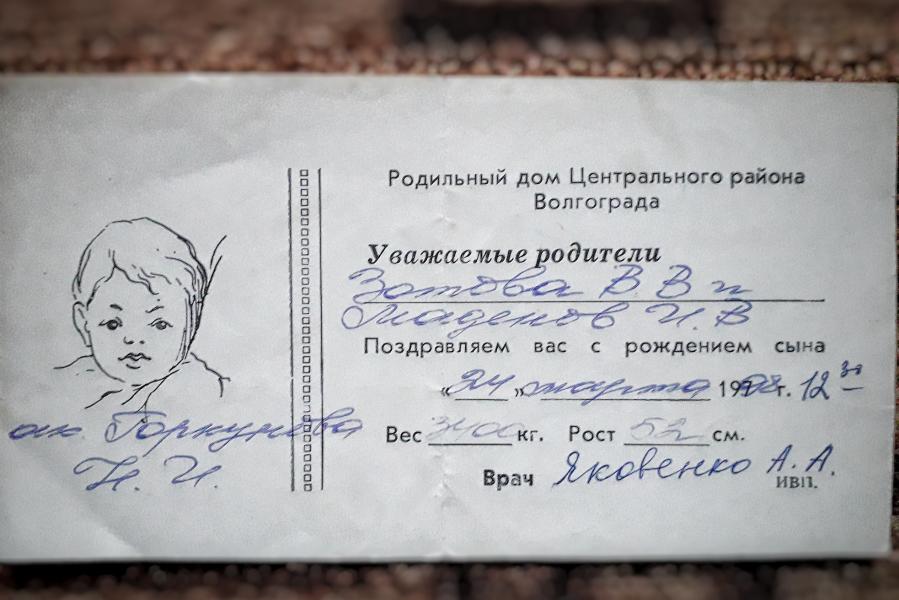 Родильный дом Центрального района
Волгограда
Уважаемые родители
Зотова В В и
Маденов И. В
Поздравляем вас с рождением сына
«24» марта 1998г. 12 30
Вес 3400 кг. Рост 52 см.
Врач Яковенко А. А.
ИВП.
ак. Горкунова
Н. И.